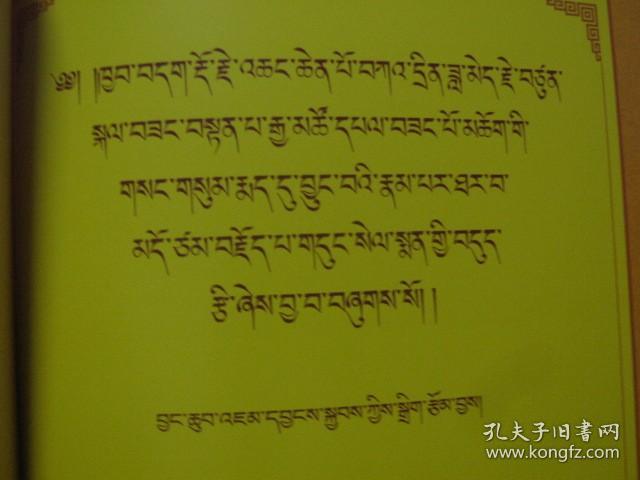 ༄༅། །ཁྱབ་བདག་རྡོ་རྗེ་འཆང་ཆེན་པོ་བཀའ་དྲིན་ཟླ་མེད་རྗེ་བཙུན་
སྐལ་བཟང་བསྟན་པ་རྒྱ་མཚོ་དཔལ་བཟང་པོ་མཆོག་གི་
གསང་གསུམ་རྨད་དུ་བྱུང་བའི་རྣམ་པར་ཐར་བ་
མདོ་ཙམ་བརྗོད་པ་གདུང་སེལ་སྨན་གྱི་བདུད་
རྩི་ཞེས་བྱ་བ་བཞུགས་སོ། །
བྱང་ཆུབ་འཇམ་དབྱངས་སྐྱབས་ཀྱིས་སྒྲིག་རྩོམ་བྱས།
孔夫子旧书网
www.kongfz.com